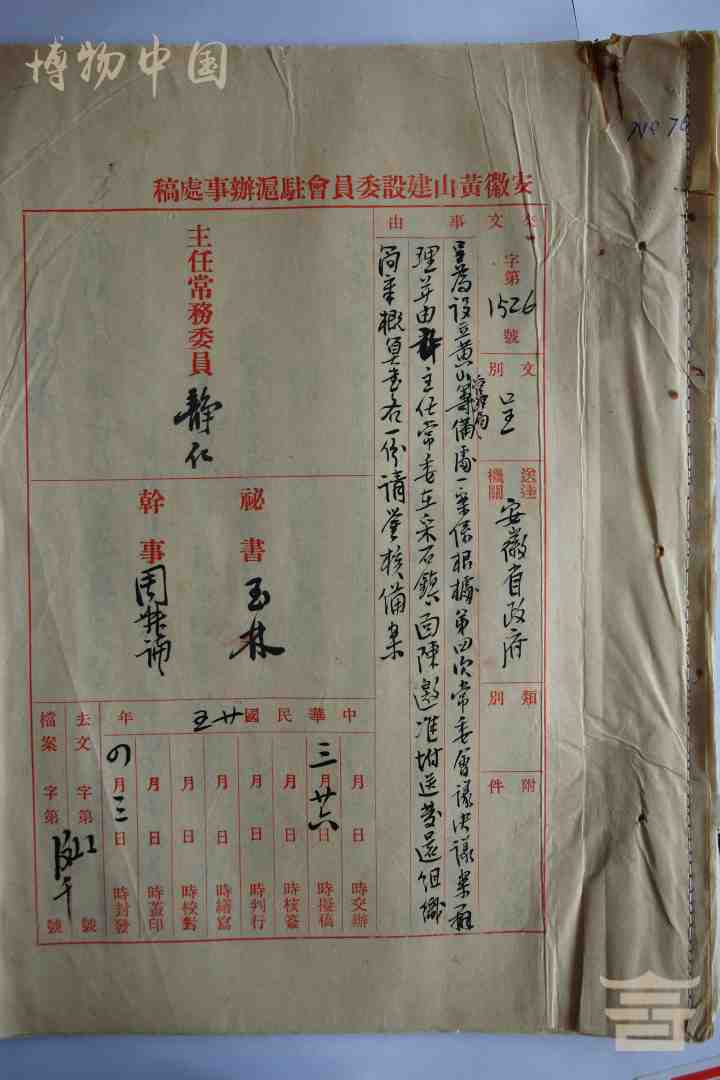 博物中国
No 76
安徽黃山建設委員會駐滬辦事處稿
去文 字第1526號
文別 呈
送達機關 安徽省政府
類別
附件
事由
呈為設立黃山籌備處一案係根據第四次常委會議決議案辦
管理局
理并由許主任常委在采石鎮面陳邀准附送及組織
簡章概算書各一份請鑒核備案
主任常務委員 靜仁
祕書 玉林
幹事 周
中華民國廿五年
月 日 時交辦
三月廿六日 時擬稿
月 日 時核簽
月 日 時判行
月 日 時繕寫
月 日 時校對
月 日 時蓋印
四月三日 時封發
去文 字第 號
檔案 字第 號